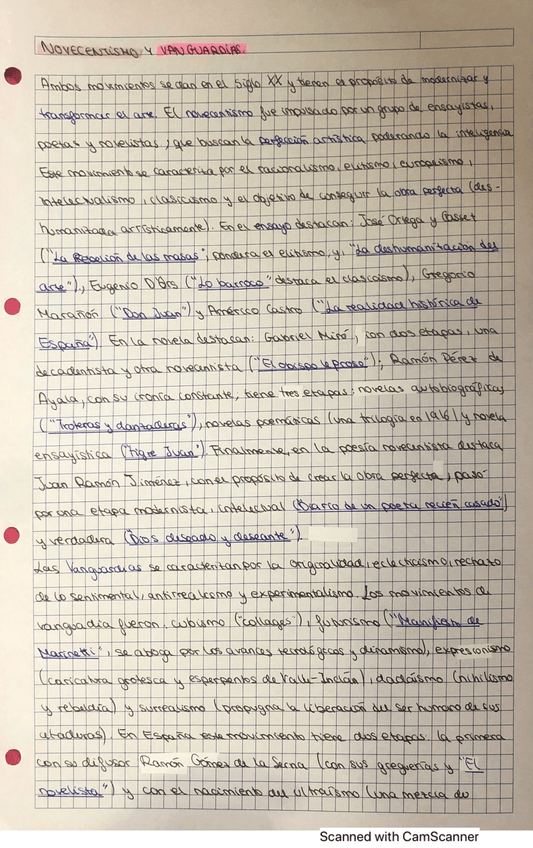 NOVECENTISMO Y VANGUARDIAS.
Ambos movimientos se dan en el Siglo XX y tienen el propósito de modernizar y
transformar el arte. El novecentismo fue impulsado por un grupo de ensayistas,
poetas y novelistas, que buscan la perfección artística, ponderando la inteligencia
Este movimiento se caracteriza por el racionalismo, elitismo, europeísmo,
intelectualismo, clasicismo y el objetivo de conseguir la obra perfecta (des-
humanizada artísticamente). En el ensayo destacan: José Ortega y Gasset
("La Rebelión de las masas", pondera el elitismo, y, "La deshumanización del
arte"), Eugenio D'Ors ("Lo barroco" destaca el clasicismo), Gregorio
Marañón ("Don Juan") y Américo Castro ("La realidad histórica de
España"). En la novela destacan: Gabriel Miró, con dos etapas, una
decadentista y otra novecentista ("El obispo leproso"), Ramón Pérez de
Ayala, con su ironía constante, tiene tres etapas: novelas autobiográficas
("Troteras y danzaderas"), novelas poemáticas (una trilogía en 1916) y novela
ensayística ("Tigre Juan"). Finalmente, en la poesía novecentista destaca
Juan Ramón Jiménez, con el propósito de crear la obra perfecta, pasó
por una etapa modernista, intelectual (Diario de un poeta recién casado")
y verdadera (Dios deseado y deseante")
Las Vanguardias se caracterizan por la originalidad, eclecticismo, rechazo
de lo sentimental, antirrealismo y experimentalismo. Los movimientos de
vanguadia fueron, cubismo ("collages"), futurismo ("Manifiesto de
Marinetti", se aboga por los avances tecnológicos y dinamismo), expresionismo
(caricatura grotesca y esperpentos de Valle-Inclán), dadaísmo (nihilismo
y rebeldía) y surrealismo (propugna la liberación del ser humano de sus
ataduras). En España este movimiento tiene dos etapas: la primera
con su difusor Ramón Gómez de la Serna (con sus greguerías y "El
novelista") y con el nacimiento del ultraísmo (una mezcla de
Scanned with CamScanner